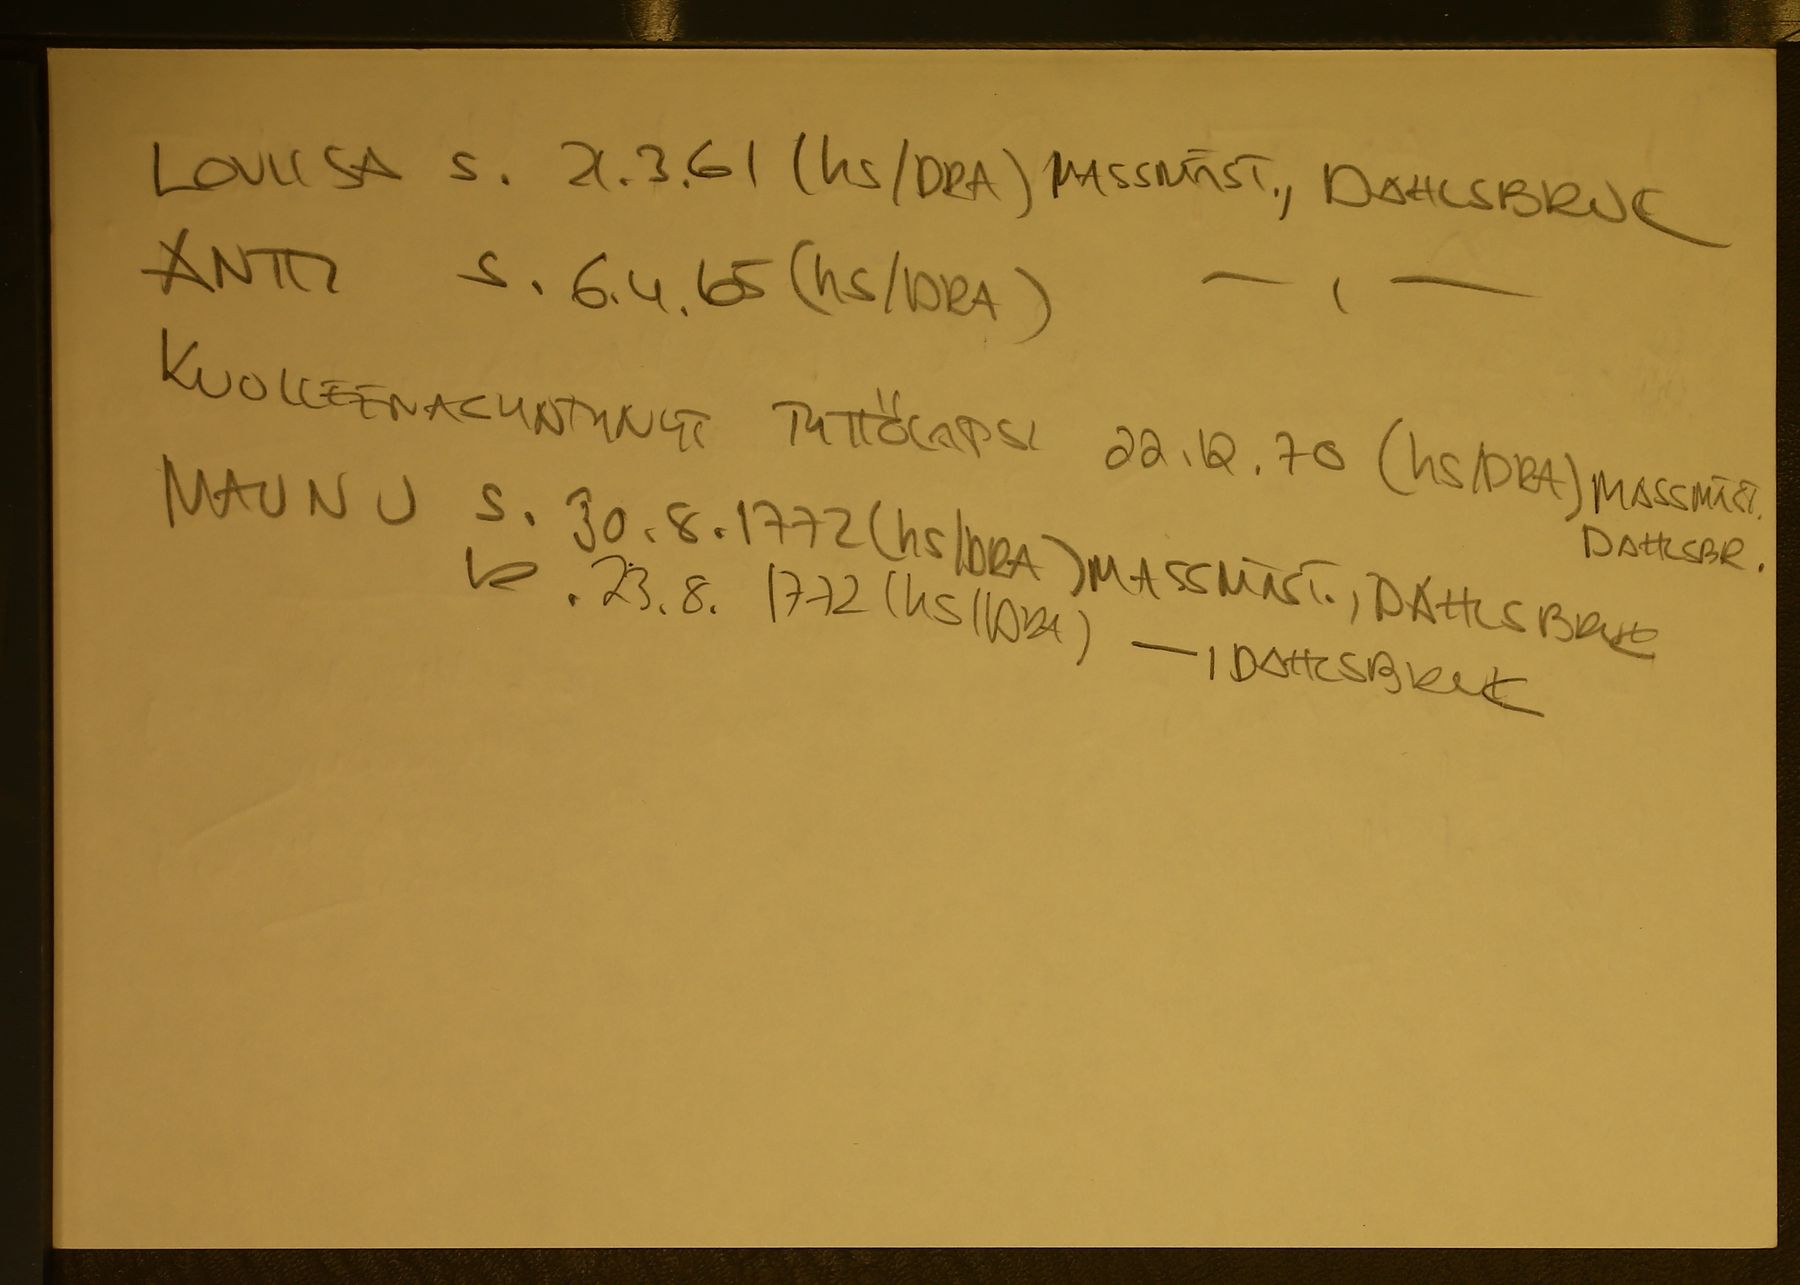 LOVIISA s. 21.3.61 (hs/DRA) MASSMÄST., DAHLSBRUK
ANTTI s. 6.4.65 (hs/DRA) — , —
KUOLLEENASYNTYNYT TYTTÖLAPSI 22.12.70 (hs/DRA) MASSMÄST.
DAHLSBR.
MAUNU s. 30.8.1772 (hs/DRA) MASSMÄST., DAHLSBRUK
k. 23.8. 1772 (hs/DRA) — , DAHLSBRUK